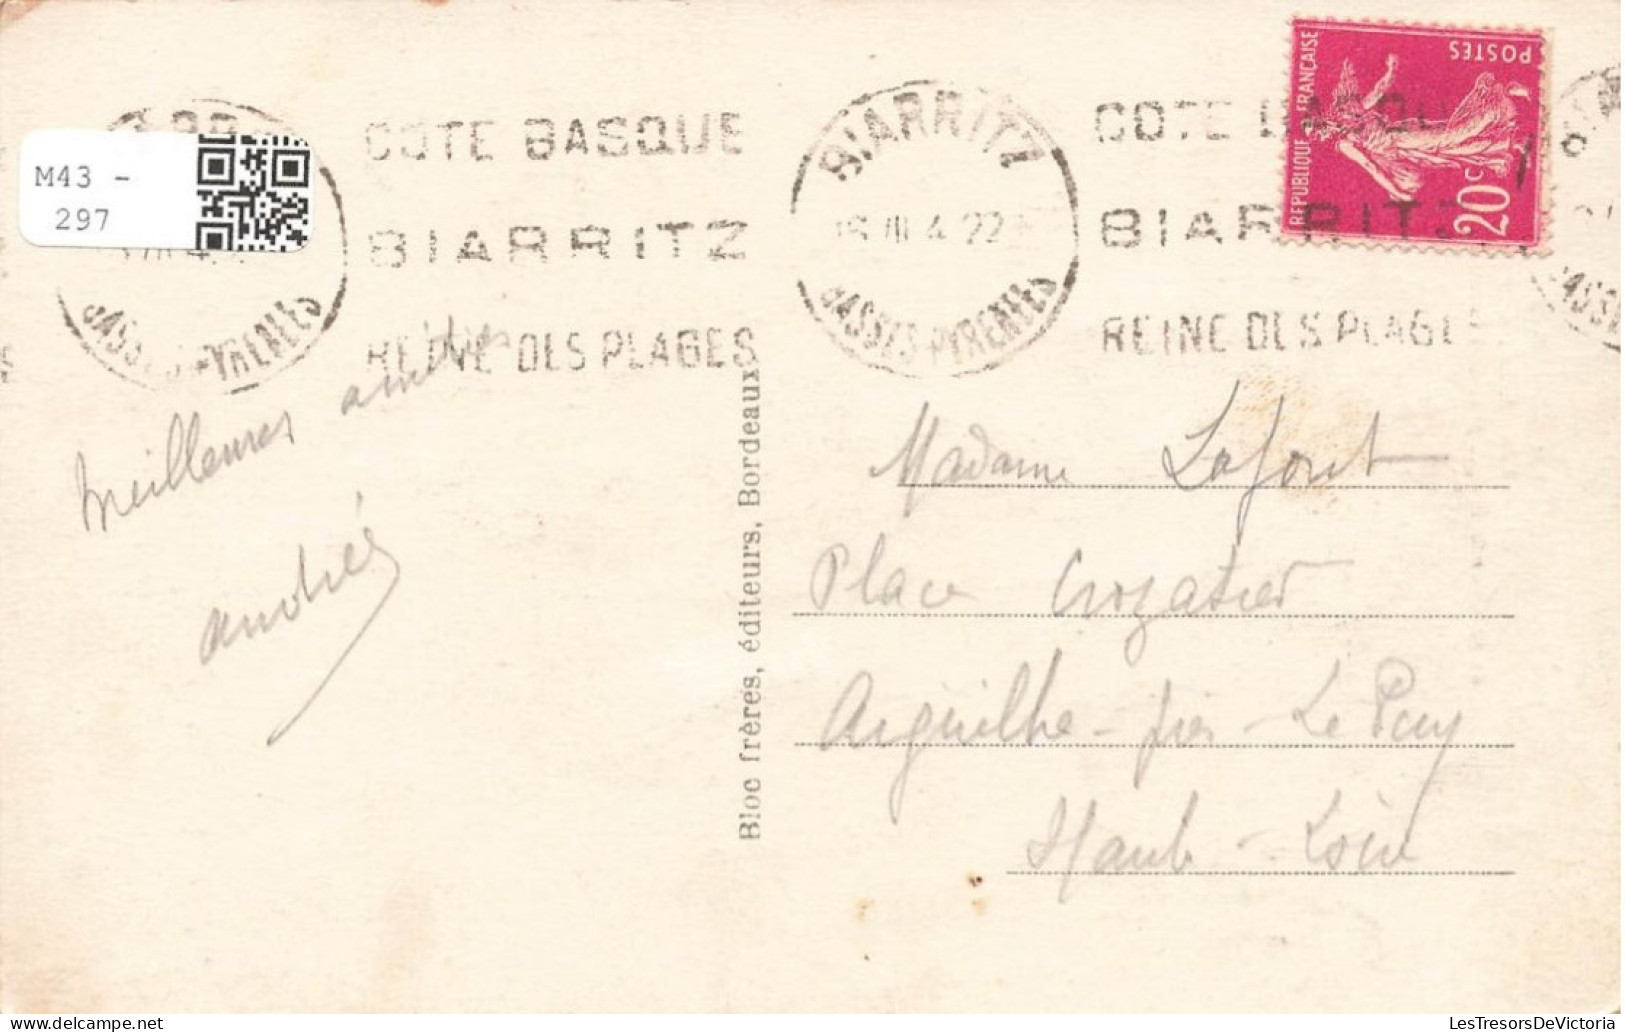 M43 -
297
COTE BASQUE
BIARRITZ
REINE DES PLAGES
BASSES-PYRENEES
BIARRITZ
BASSES-PYRENEES
COTE BASQU
BIARRITZ
REINE DES PLAGES
REPUBLIQUE FRANÇAISE
POSTES
20c
Meilleures amitiés
Andrée
Bloc frères, éditeurs, Bordeaux
Madame Lafont
Place Crozatier
Aiguilhe - près - Le Puy
Haute - Loire
LesTresorsDeVictoria